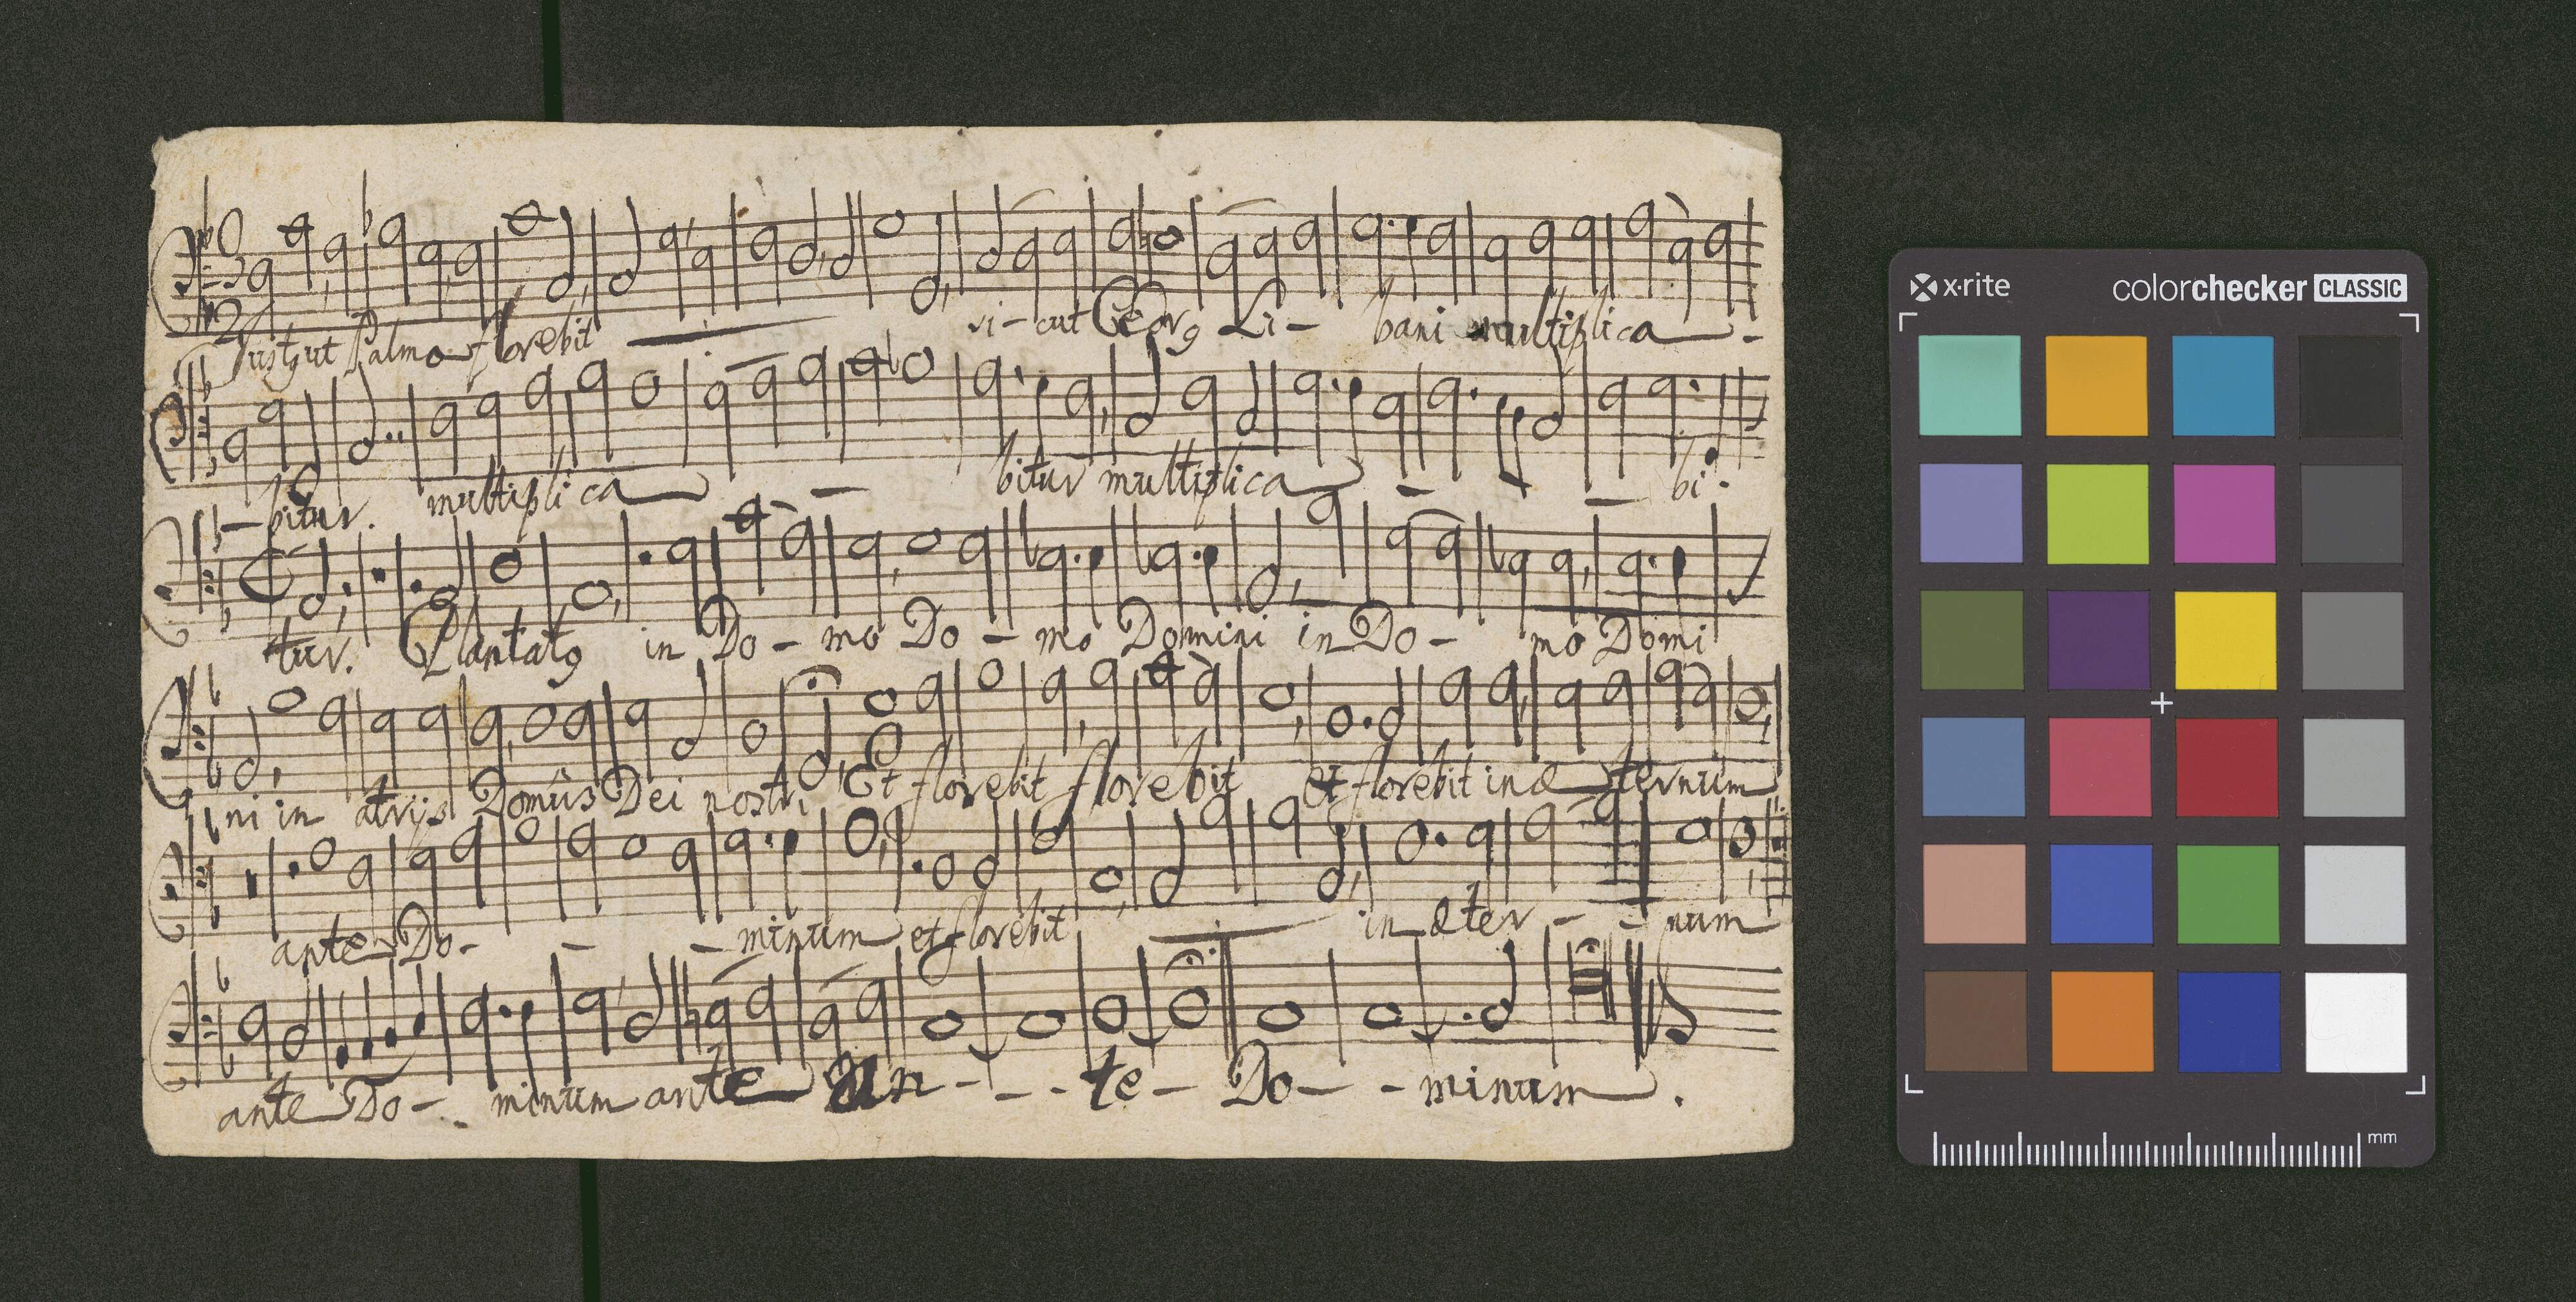 Justg ut Palma florebit si-cut Cedrg Li- bani multiplica -
- bitur. multiplica - bitur multiplica - - bi-
tur. Plantatg in Do - mo Do - mo Domini in Do - mo Domi
ni in atrijs Domûs Dei nostri Et florebit florebit et florebit in æternum
ante Do- - - minum et florebit in æter - - num
ante Do - - minum ante An - - - te - Do - - minum .
x-rite colorchecker CLASSIC
mm